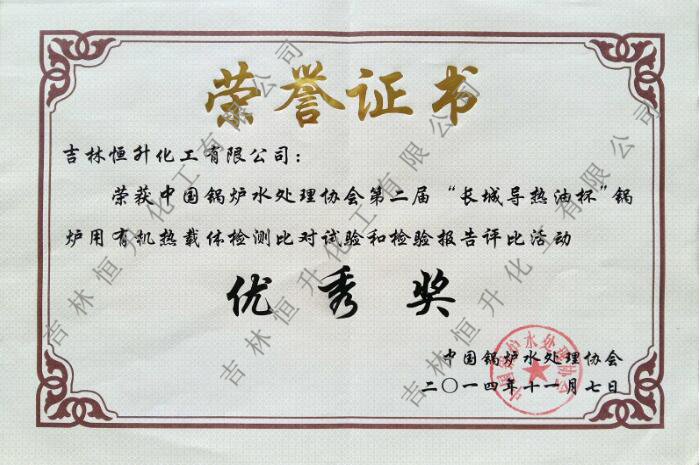 荣誉证书
吉林恒升化工有限公司：
荣获中国锅炉水处理协会第二届“长城导热油杯”锅
炉用有机热载体检测比对试验和检验报告评比活动
优秀奖
中国锅炉水处理协会
二〇一四年十一月七日
中国锅炉水处理协会
吉林恒升化工有限公司
吉林恒升化工有限公司
吉林恒升化工有限公司